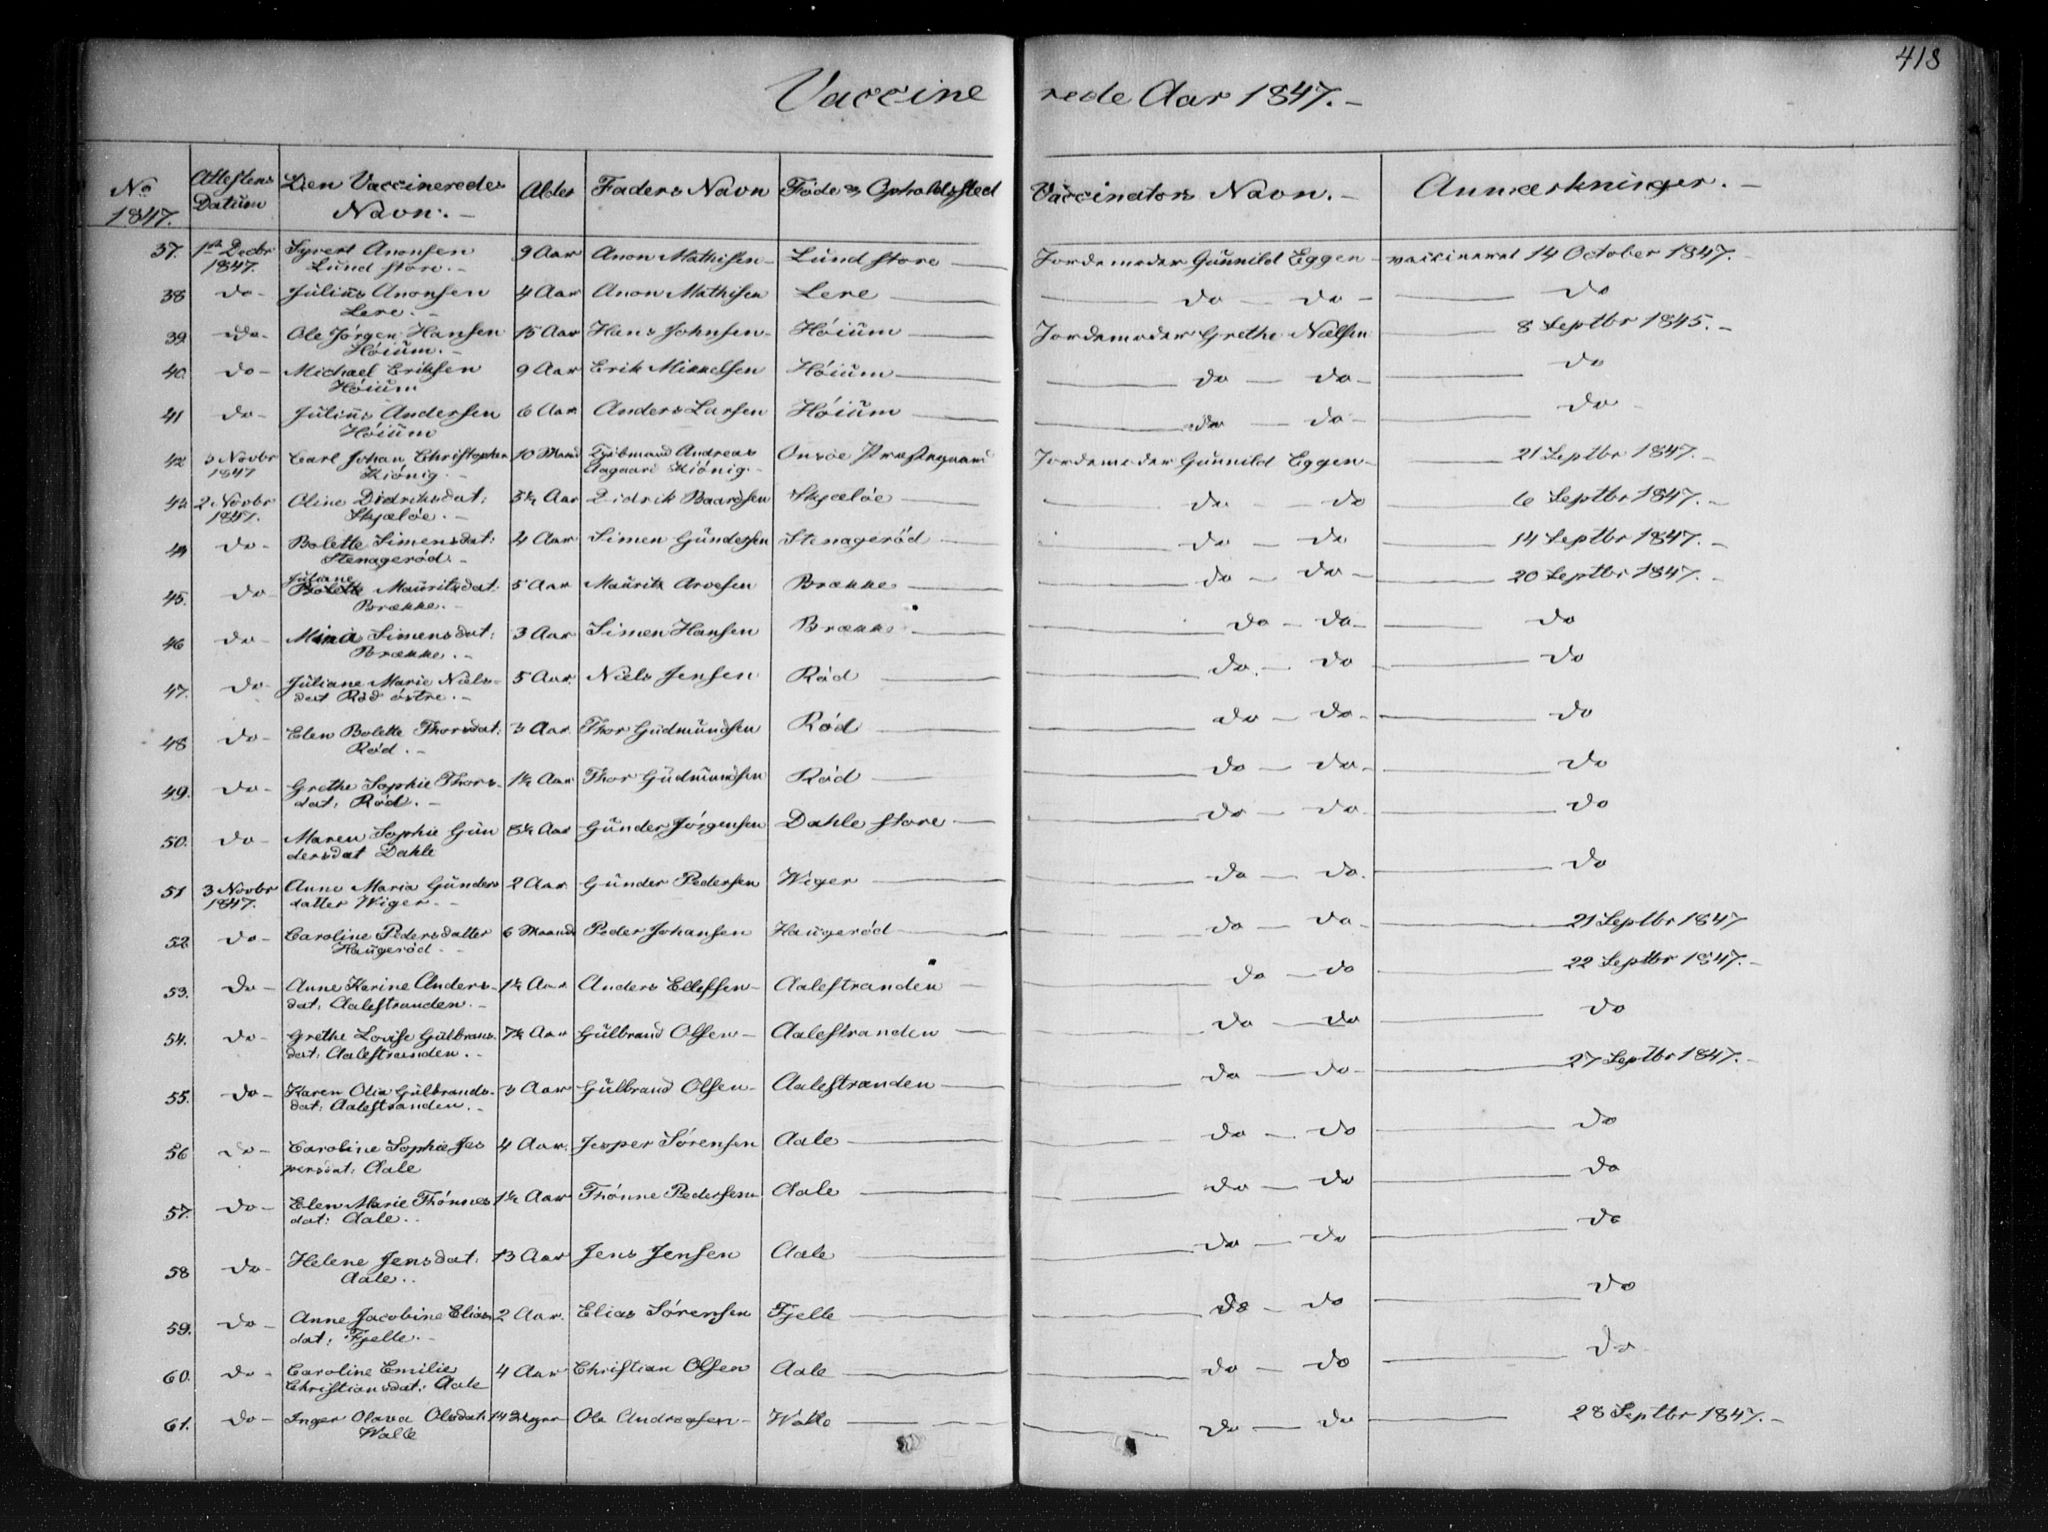 418
Vaccinerede Aar 1847.-
No 1847. Attestens Datum Den Vaccineredes Navn.- Alder Faders Navn Føde og Opholdssted Vaccinators Navn.- Anmærkninger.-
37. 1st Decbr 1847. Syvert Anonsen Lund store.- 9 Aar Anon Mathisen- Lund store Jordemoder Gunnild Eggen- vaccineret 14 October 1847.-
38 do- Julius Anonsen Lere.- 4 Aar Anon Mathisen Lere do - do- do
39. do- Ole Jørgen Hansen Høium.- 15 Aar Hans Johnsen- Høium Jordemoder Grethe Nielsen 8 Septbr 1845.-
40. do- Michael Eriksen Høium 9 Aar Erik Mikkelsen Høium do - do- do
41 do- Julius Andersen Høium 6 Aar Anders Larsen Høium do - do- do
42 3 Novbr 1847 Carl Johan Christopher Kiønig.- 10 Maand Andreas Aagaard Kiønig.- Onsøe Præstegaard Jordemoder Gunnild Eggen- 21 Septbr 1847.-
43 2 Novbr 1847. Oline Didriksdat: Skjæløe.- 5½ Aar Didrik Baardsen Skjæløe do - do 6 Septbr 1847.-
44 do- Bolette Simensdat: Stenagerød.- 4 Aar Simen Gundersen Stenagerød do - do 14 Septbr 1847.-
45. do- Juliane Bolette Mauritsdat: Brække.- 5 Aar Maurits Arvesen Brække do - do- 20 Septbr 1847.-
46 do- Mina Simensdat: Brække.- 3 Aar Simen Hansen Brække do - do- do
47. do- Juliane Marie Nielsdat Rød østre.- 5 Aar. Niels Jensen Rød do - do do
48 do- Elen Bolette Thorsdat: Rød.- 3 Aar. Thor Gudmundsen Rød do - do- do
49. do- Grethe Sophie Thorsdat: Rød.- 1½ Aar Thor Gudmundsen Rød do - do- do
50. do- Maren Sophie Gundersdat Dahle 5½ Aar Gunder Jørgensen Dahle store do - do- do
51 3 Novbr 1847. Anne Maria Gundersdatter Wiger.- 2 Aar. Gunder Pedersen Wiger do - do. do
52. do- Caroline Pedersdatter Haugerød.- 6 Maand Peder Johansen Haugerød do - do- 21 Septbr 1847
53. do- Anne Karine Andersdat: Aalestranden.- 1½ Aar Anders Ellefsen- Aalestranden do - do 22 Septbr 1847.-
54. do- Grethe Lovise Gulbransdat: Aalestranden.- 7½ Aar Gulbrand Olsen- Aalestranden do - do do
55. do- Karen Olia Gulbrandsdat: Aalestranden.- 3 Aar Gulbrand Olsen- Aalestranden do - do- 27 Septbr 1847.-
56 do- Caroline Sophie Jespersdat: Aale 4 Aar. Jesper Sørensen Aale do - do do
57. do- Elen Marie Thønnesdat: Aale.- 1½ Aar Thønne Pedersen Aale do - do do
58 do- Helene Jensdat: Aale.- 13 Aar Jens Jensen Aale do - do do
59. do- Anne Jacobine Eliasdat: Fjelle.- 2 Aar. Elias Sørensen Fjelle do - do do
60. do- Caroline Emilie Christiansdat: Aale 4 Aar Christian Olsen Aale do - do do
61. do- Inger Olava Olsdat: Walle 14 Uger Ole Andreasen- Walle do - do 28 Septbr 1847.-